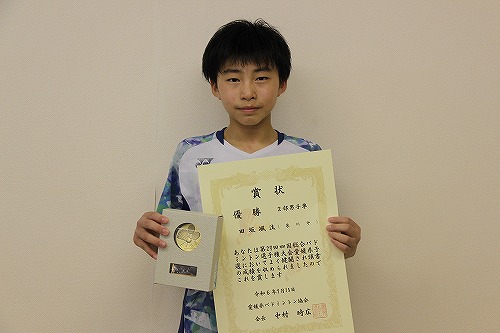 賞状
優勝 2部男子単
田坂颯汰(東川中)
あなたは第29回四国総合バド
ミントン選手権大会愛媛県予
選において よく健闘され頭書
の成績を収められましたので
これを賞します
令和6年7月15日
愛媛県バドミントン協会
会長 中村 時広
YONEX